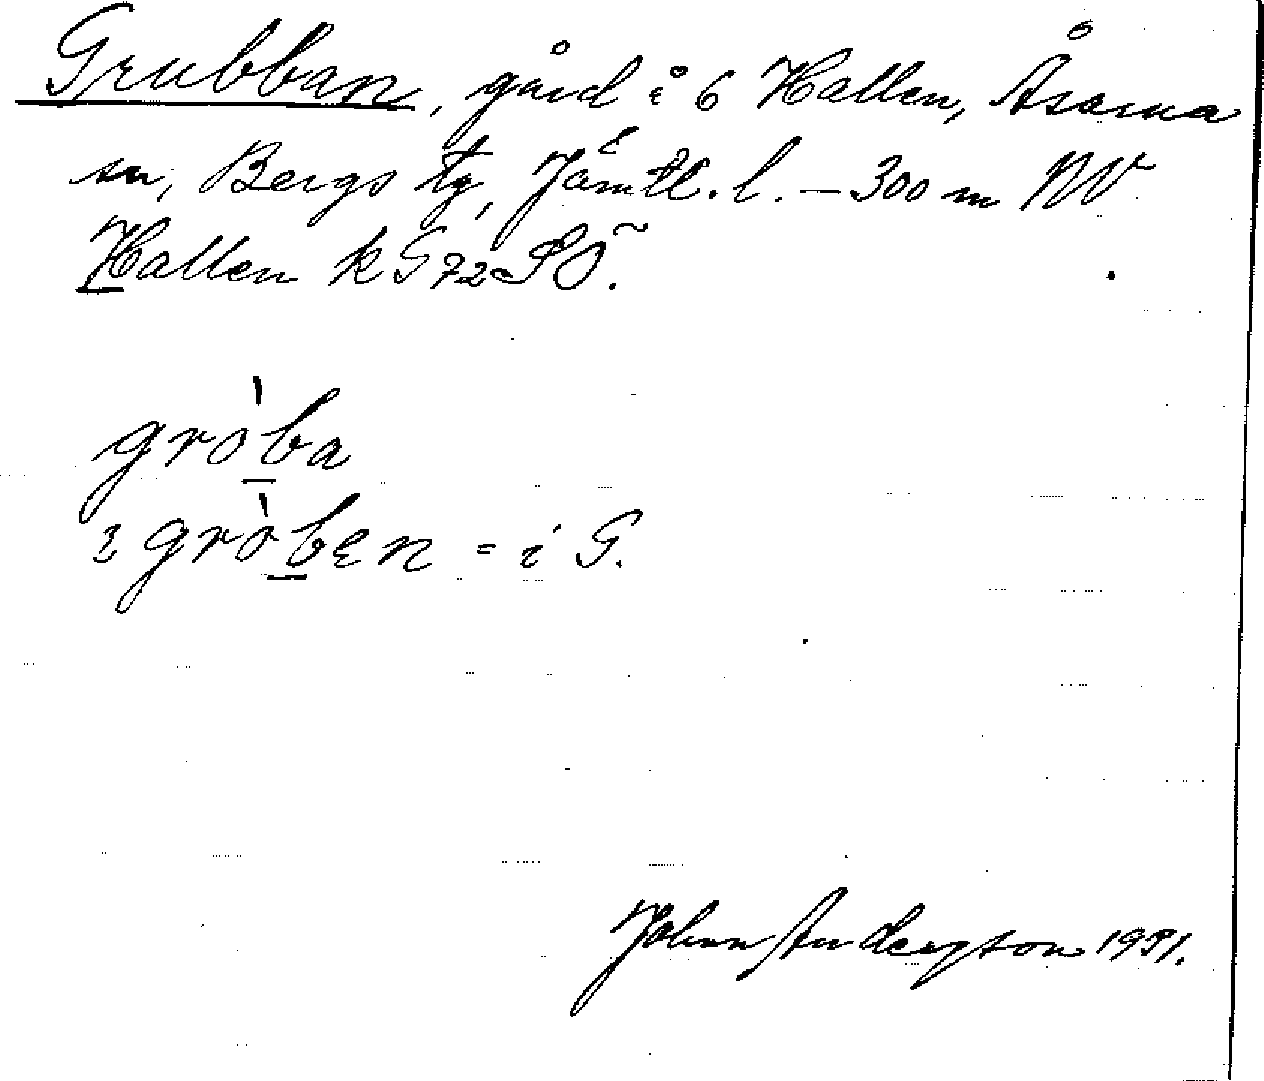 Grubban, gård i 6 Hallen, Åsarna
sn, Bergs tg, Jämtl. l. – 300 m NV
Hallen k G 72 SÖ.
gròba
gròben = i G.
Johan Andersson 1951.